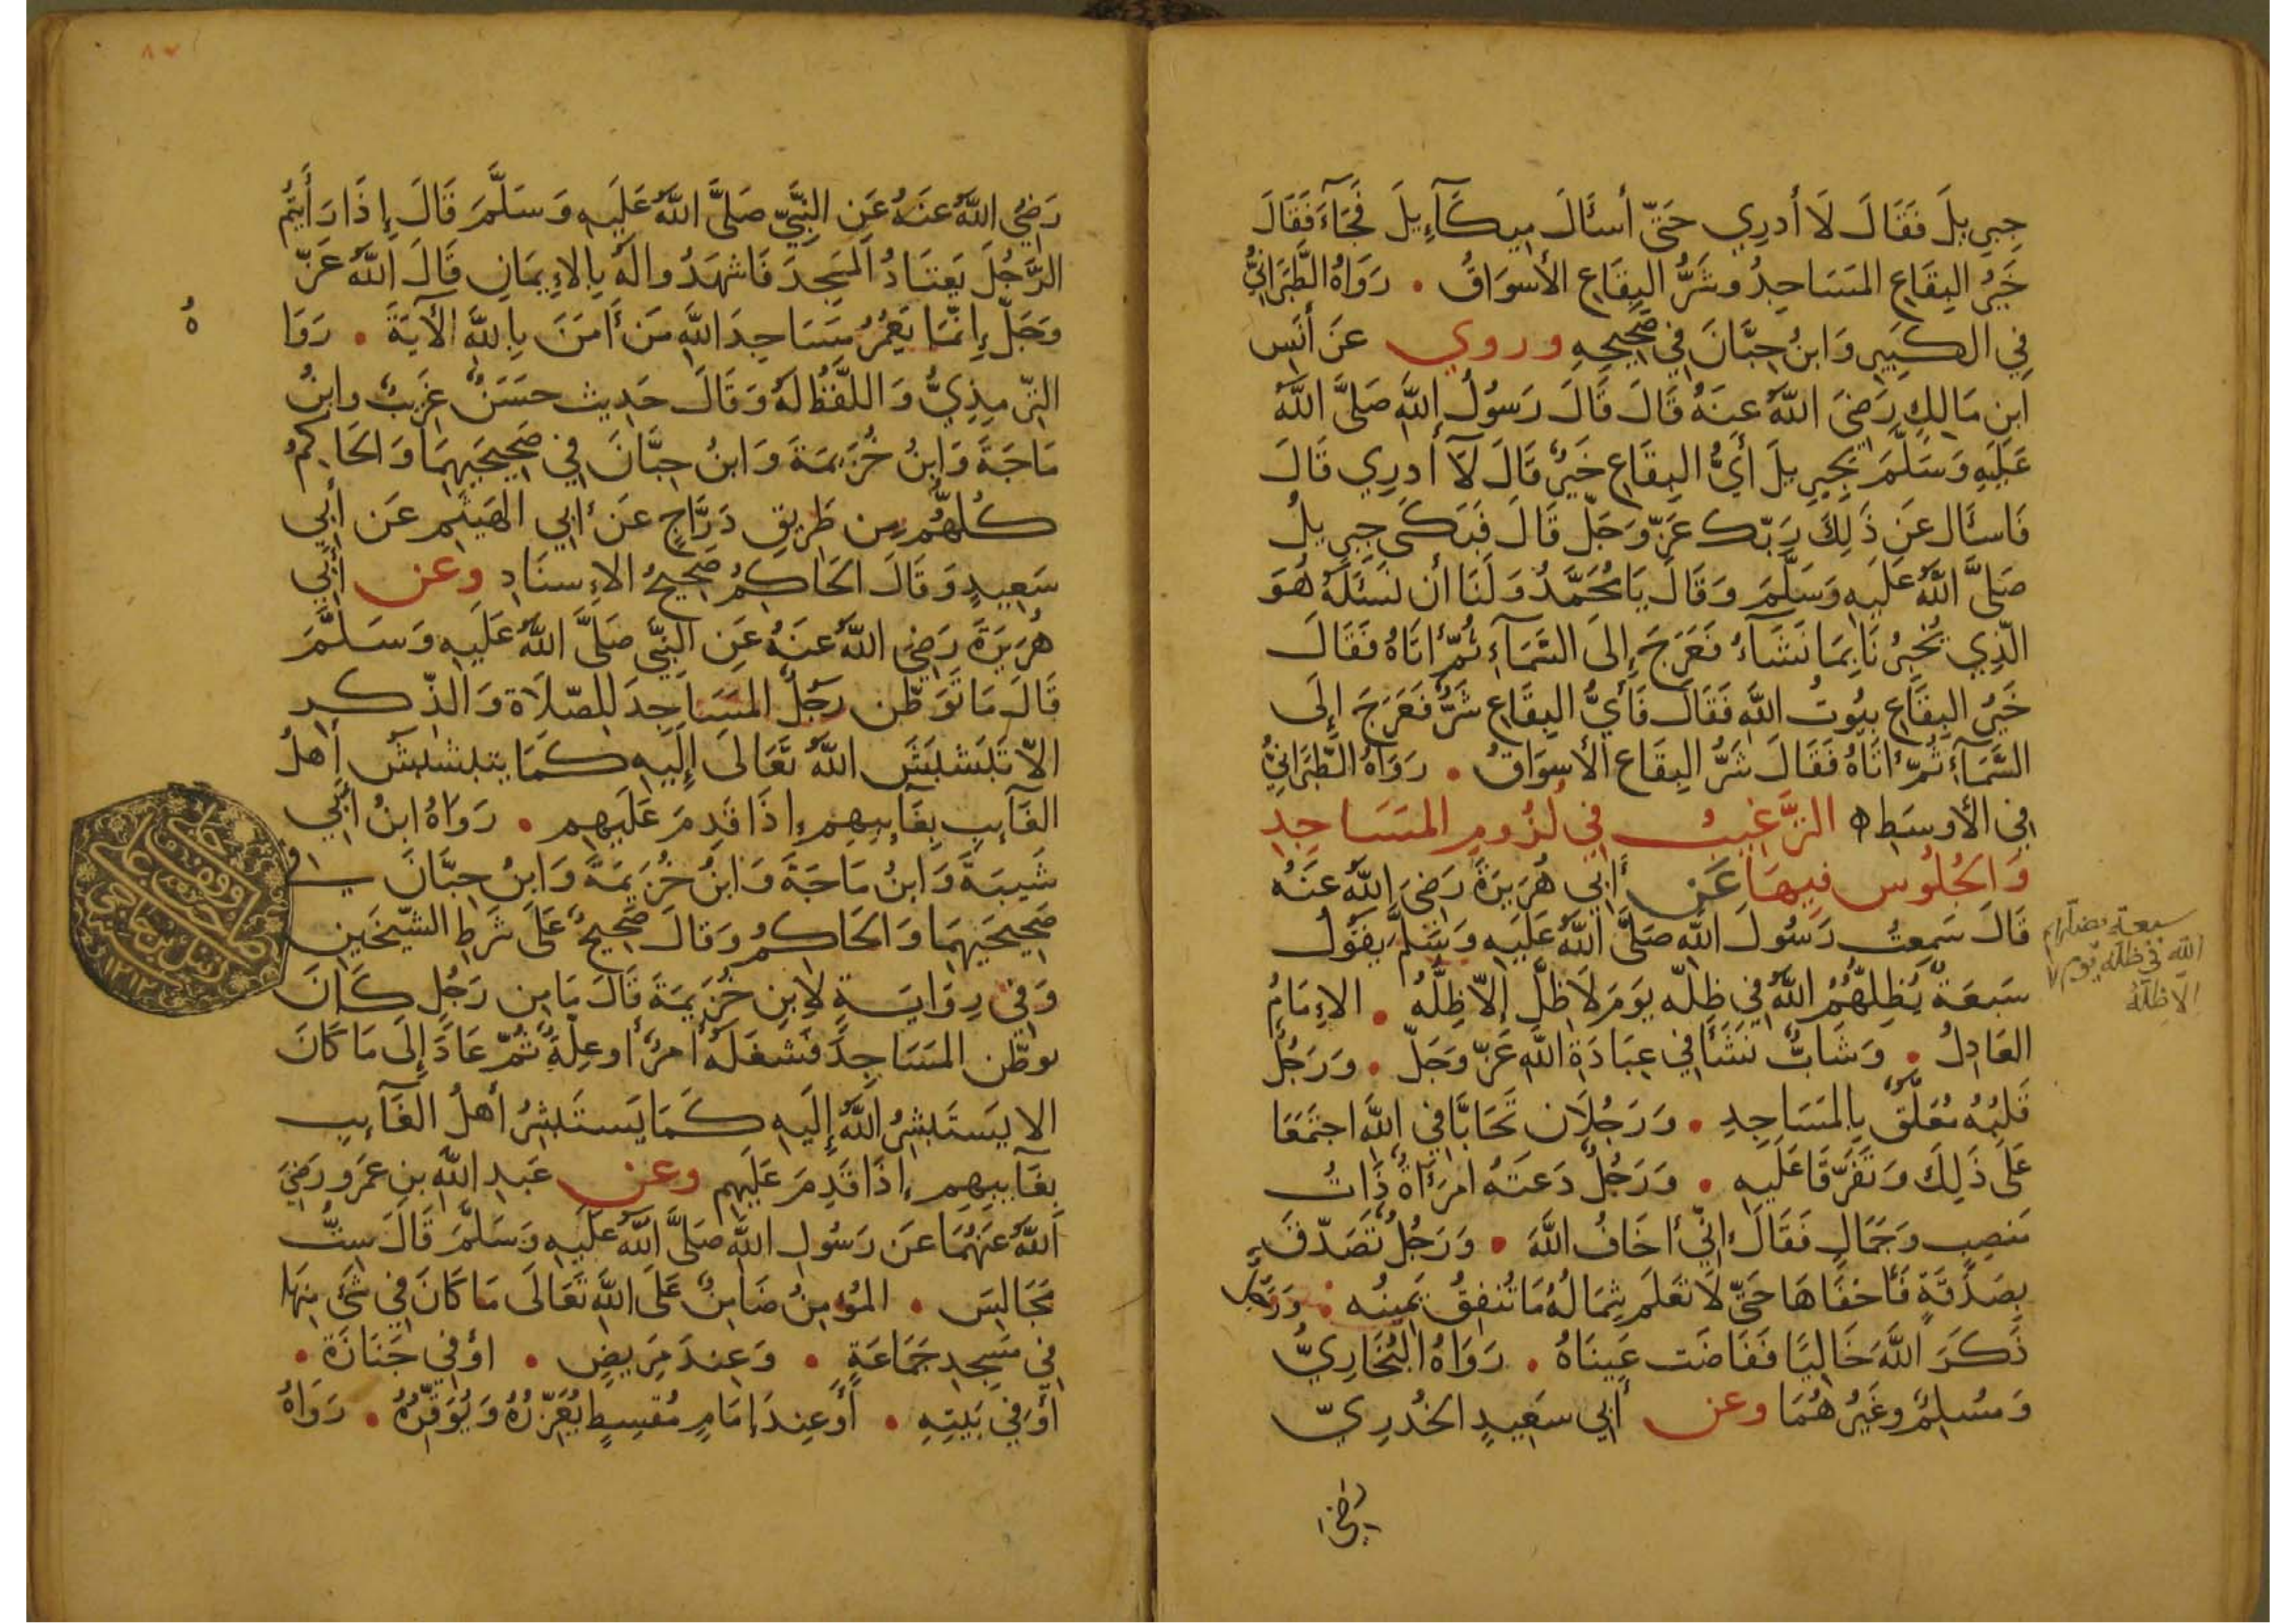 جِبرِيلَ فَقَالَ لَا أَدرِي حَتَّى أَسأَلَ مِيكَآءِيلَ فَجَآءَ فَقَالَ
خَيرُ البِقَاعِ المَسَاجِدُ وشَرُّ البِقَاعِ الأَسوَاقُ • رَوَاهُ الطَّبَرَانِيُّ
فِي الكَبِيرِ وَابنُ حِبَّانَ فِي صَحِيحِهِ وروي عَن أَنَسِ
ابنِ مَالِكٍ رَضِيَ اللَّهُ عَنهُ قَالَ قَالَ رَسُولُ اللَّهِ صَلَّى اللَّهُ
عَلَيهِ وَسَلَّمَ لِجِبرِيلَ أَيُّ البِقَاعِ خَيرٌ قَالَ لَآ أَدرِي قَالَ
فَاسئَال عَن ذَلِكَ رَبّك عَزّ وَجَلّ قَالَ فَبَكَى جِبرِيلُ
صَلَّى اللَّهُ عَلَيهِ وَسَلَّمَ وَقَالَ يَا مُحَمَّدُ وَلَنَا أَن نَسئَلَهُ هُوَ
الَّذِي يُخبِرُنَا بِمَا نَشَآءُ فَعَرَجَ إِلَى السَّمَآءِ ثُمّ أَتَاهُ فَقَالَ
خَيرُ البِقَاعِ بيُوتُ اللَّهِ فَقَالَ فَأَيُّ البِقَاعِ شَرٌّ فَعَرَجَ إِلَى
السَّمَآءِ ثُمّ أَتَاهُ فَقَالَ شَرُّ البِقَاعِ الأَسوَاقُ • رَوَاهُ الطَّبَرَانِيُّ
فِي الأَوسَطِ ه التَّرغِيبُ فِي لُزُومِ المَسَاجِدِ
وَالجُلُوسِ فِيهَا عَن أَبِي هُرَيرَةَ رَضِيَ اللَّهُ عَنهُ
قَالَ سَمِعتُ رَسُولَ اللَّهِ صَلَّى اللَّهُ عَلَيهِ وَسَلَّمَ يقُولُ
سَبعَةٌ يُظِلُّهُمُ اللَّهُ فِي ظِلِّهِ يَومَ لَا ظِلَّ إِلَّا ظِلُّهُ • الإِمَامُ
العَادِلُ • وَشَابٌّ نَشَأَ فِي عِبَادَةِ اللَّهِ عَزّ وَجَلّ • وَرَجُلٌ
قَلبُهُ مُعَلَّقٌ بِالمَسَاجِدِ • وَرَجُلَانِ تَحَابَّا فِي اللَّهِ اجتَمَعَا
عَلَى ذَلِكَ وَتَفَرَّقَا عَلَيهِ • وَرَجُلٌ دَعَتهُ امرَأَةٌ ذَاتُ
مَنصِبٍ وَجَمَالٍ فَقَالَ إِنِّي أَخَافُ اللَّهَ • وَرَجُلٌ تَصَدَّقَ
بِصَدَقَةٍ فَأَخفَاهَا حَتّى لَا تَعلَم شِمَالُهُ مَا تُنفِقُ يَمِينُه • وَرَجُلٌ
ذَكَرَ اللَّهَ خَالِيًا فَفَاضَت عَينَاهُ • رَوَاهُ البُخَارِيُّ
وَمُسلِمٌ وغَيرُهُمَا وعن أَبِي سَعِيدٍ الخُدرِيّ
رَضِيَ
سبعة يظلهم
الله في ظله يوم لا
إلا ظله
رَضِيَ اللَّهُ عَنهُ عَنِ النَّبِيِّ صَلَّى اللَّهُ عَلَيهِ وَسَلَّمَ قَالَ إِذَا رَأَيتُم
الرَّجُلَ يَعتَادُ المَسجِدَ فَاشهَدُوا لَهُ بِالإِيمَانِ قَالَ اللَّهُ عَزّ
وَجَلّ إِنَّمَا يَعمُرُ مَسَاجِدَ اللَّهِ مَن أَمَنَ بِاللَّهِ الآيَةَ • رَوَا
هُ
التِّرمِذِيُّ وَاللَّفظُ لَهُ وَقَالَ حَدِيث حَسَنٌ غَرِيبٌ وابنُ
مَاجَةَ وَابنُ خُزَيمَةَ وَابنُ حِبَّانَ فِي صَحِيحَيهِمَا وَالحَاكِمُ
كُلُّهُم مِن طَرِيقِ دَرَّاجٍ عَن أَبِي الهَيثَمِ عَن أَبِي
سَعِيدٍ وَقَالَ الحَاكِمُ صَحِيحُ الإِسنَادِ وعن أَبِي
هُرَيرَةَ رَضِيَ اللَّهُ عَنهُ عَنِ النَّبِيّ صَلَّى اللَّهُ عَلَيهِ وَسَلَّمَ
قَالَ مَا تَوَطَّن رَجُلٌ المَسَاجِدَ لِلصَّلَاة وَالذِّكرِ
الَّا تَبَشبَشَ اللَّهُ تَعَالَى إِلَيهِ كَمَا يتبشبشُ أَهلُ
الغَآيِبِ بِغَآيِبِهِم إِذَا قَدِمَ عَلَيهِم • رَوَاهُ ابنُ أَبِي
شَيبَةَ وَابنُ مَاجَةَ وَابنُ خُزَيمَةَ وَابنُ حِبَّانَ فِي
صَحِيحَيهِمَا وَالحَاكِمُ وَقَالَ صَحِيحٌ عَلَى شَرطِ الشَّيخَينِ
وَفِي رِوَايَةٍ لِابنِ خُزَيمَةَ قَالَ مَا مِن رَجُلٍ كَانَ
توطّن المَسَاجِدَ فَشغَلَهُ أَمرٌ أَو عِلّةٌ ثُمّ عَادَ إِلَى مَا كَانَ
الا يَستَبشِرُ اللَّهُ إِلَيهِ كَمَا يَستَبشِرُ أَهلُ الغَآيِبِ
بِغَآيِبِهِم إِذَا قَدِمَ عَلَيهِم وعن عَبدِ اللَّهِ بنِ عَمرو رَضِيَ
اللَّهُ عَنهُمَا عَن رَسُولِ اللَّهِ صَلَّى اللَّهُ عَلَيهِ وَسَلَّمَ قَالَ سِتُّ
مَجَالِسَ • المُؤمِنُ ضَامِنٌ عَلَى اللَّهِ تَعَالَى مَا كَانَ فِي شَيءٍ مِنهَا
فِي مَسجِدِ جَمَاعَةٍ • وَعِندَ مَرِيضٍ • اوْ فِي جَنَازَة •
أَو فِي بَيتِهِ • أَو عِندَ إِمَامٍ مُقسِطٍ يُعَزِّرُهُ وَيُوَقِّرُهُ • رَوَاهُ